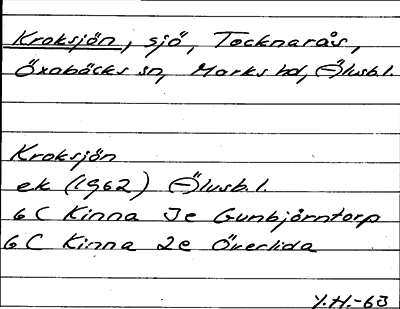 Kroksjön, sjö, Tocknarås,
Öxabäcks sn, Marks hd, Älvsb.l.
Kroksjön
ek (1962) Älvsb.l.
6 C Kinna 3e Gunbjörntorp
6 C Kinna 2e Överlida
Y.H.-63